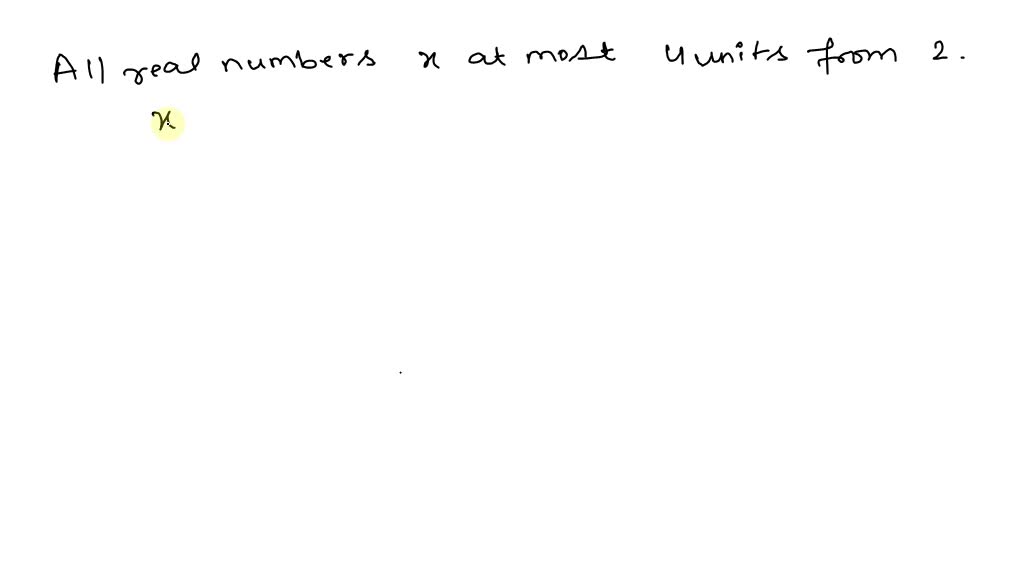 All real numbers x at most 4 units from 2.
x